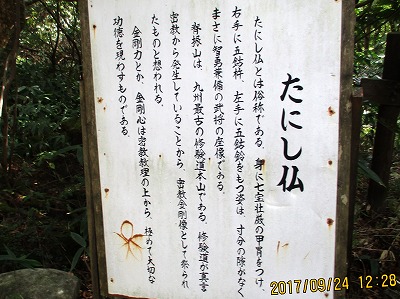 たにし仏
たにし仏とは俗称である。身に七宝壮厳の甲冑をつけ、
右手に五鈷杵、左手に五鈷鈴をもつ姿は、寸分の隙がなく
まさに智勇兼備の武将の座像である。
脊振山は、九州最古の修験道本山である。修験道が真言
密教から発生していることから、密教金剛像として祭られ
たものと想われる。
金剛力とか、金剛心は密教教理の上から、極めて大切な
功徳を現わすものである。
2017/09/24 12:28